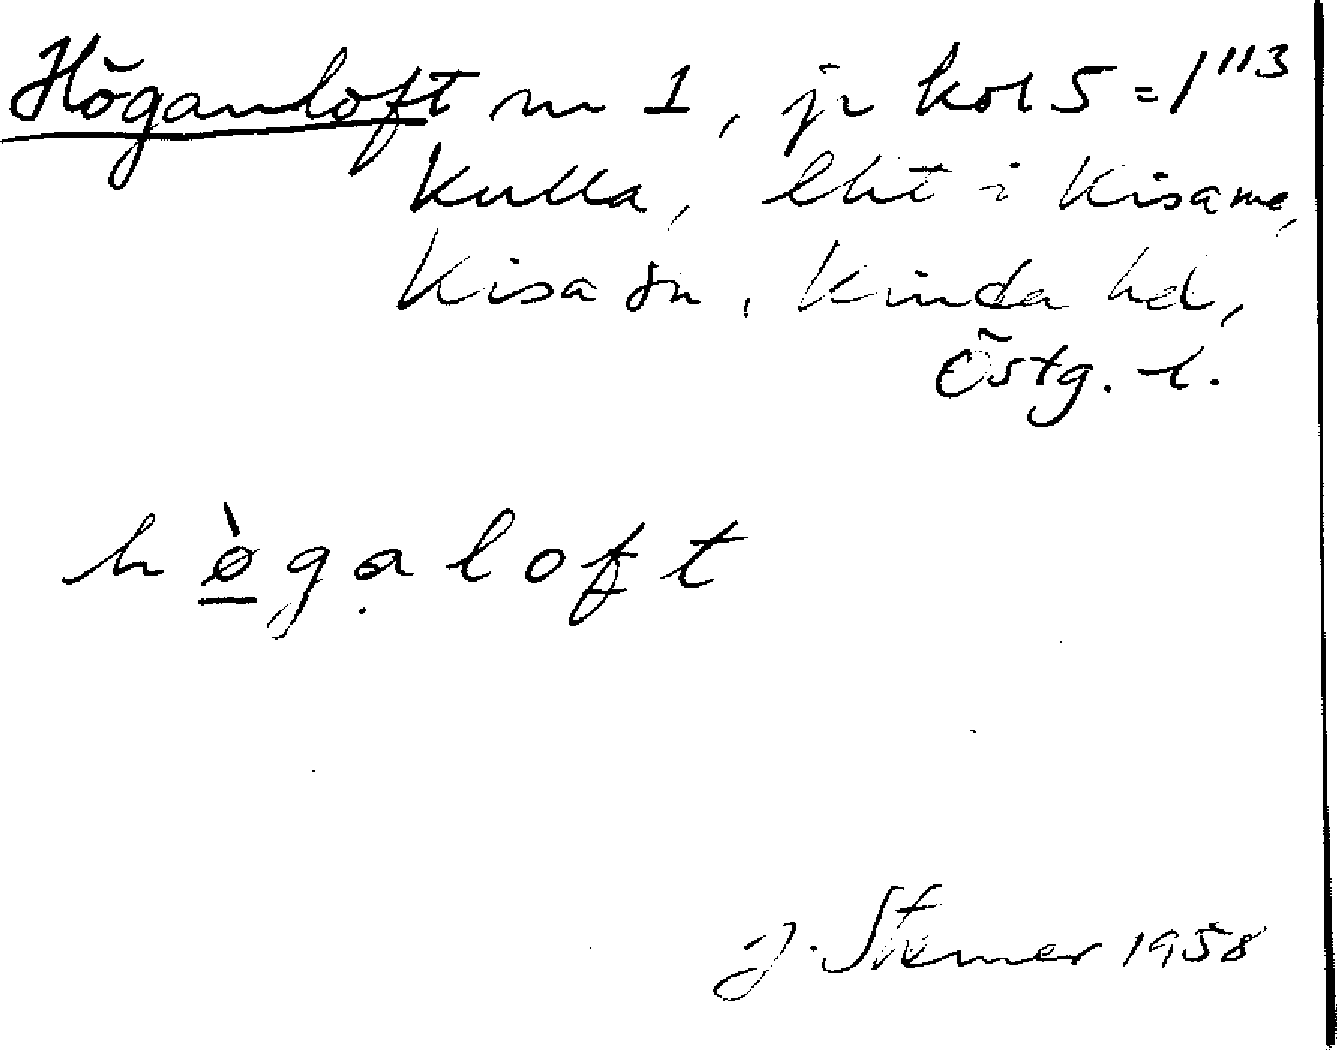 Höganloft m 1, jr kol 5 = 1"3
Kulla, lht i Kisa
Kisa sn, Kinda hd,
Östg. l.
hø̀gạloft
J. Stemer 1958